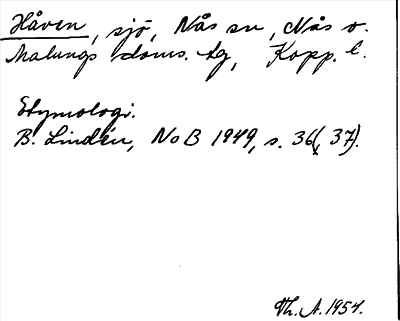 Håven, sjö, Nås sn, Nås o.
Malungs doms. tg, Kopp. l.
Etymologi.
B. Lindén, NoB 1949, s. 36(, 37).
Th. A. 1954.